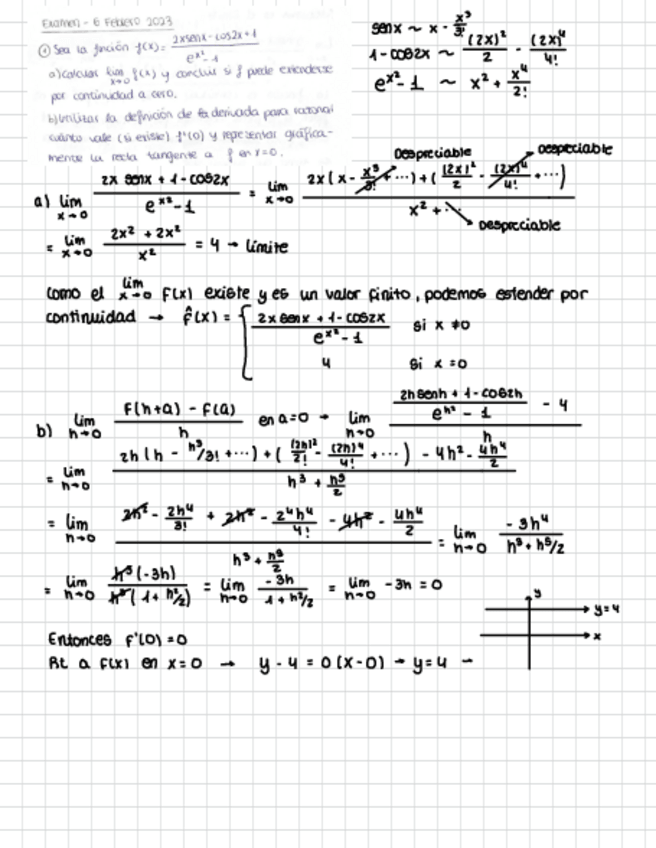 Examen - 6 Febrero 2023
① Sea la función f(x) = (2xsenx - cos2x + 1)/(e^{x²} - 1)
a) Calcular lim_{x→0} f(x) y concluir si f puede extenderse
por continuidad a cero.
b) Utilizar la definición de la derivada para razonar
cuánto vale (si existe) f'(0) y representar gráfica-
mente la recta tangente a f en x=0.
senx ~ x - x³/3!
1 - cos2x ~ (2x)²/2 - (2x)⁴/4!
e^{x²} - 1 ~ x² + x⁴/2!
Despreciable Despreciable
a) lim_{x→0} (2x senx + 1 - cos2x)/(e^{x²} - 1) = lim_{x→0} (2x(x - x³/3! + ...) + ((2x)²/2 - (2x)⁴/4! + ...))/(x² + ...)
Despreciable
= lim_{x→0} (2x² + 2x²)/x² = 4 → límite
Como el lim_{x→0} f(x) existe y es un valor finito, podemos estender por
continuidad → f̂(x) = { (2x senx + 1 - cos2x)/(e^{x²} - 1) si x ≠ 0
4 si x = 0
b) lim_{h→0} (F(h+a) - F(a))/h en a=0 → lim_{h→0} ((2h senh + 1 - cos2h)/(e^{h²} - 1) - 4)/h
= lim_{h→0} (2h(h - h³/3! + ...) + ((2h)²/2! - (2h)⁴/4! + ...) - 4h² - 4h⁴/2)/(h³ + h⁵/2)
= lim_{h→0} (2h² - 2h⁴/3! + 2h² - 2⁴h⁴/4! - 4h² - 4h⁴/2)/(h³ + h⁵/2) = lim_{h→0} (-3h⁴)/(h³ + h⁵/2)
= lim_{h→0} (h³(-3h))/(h³(1 + h²/2)) = lim_{h→0} (-3h)/(1 + h²/2) = lim_{h→0} -3h = 0
Entonces f'(0) = 0
Rt a f(x) en x=0 → y - 4 = 0(x - 0) → y = 4 →
y
y=4
x